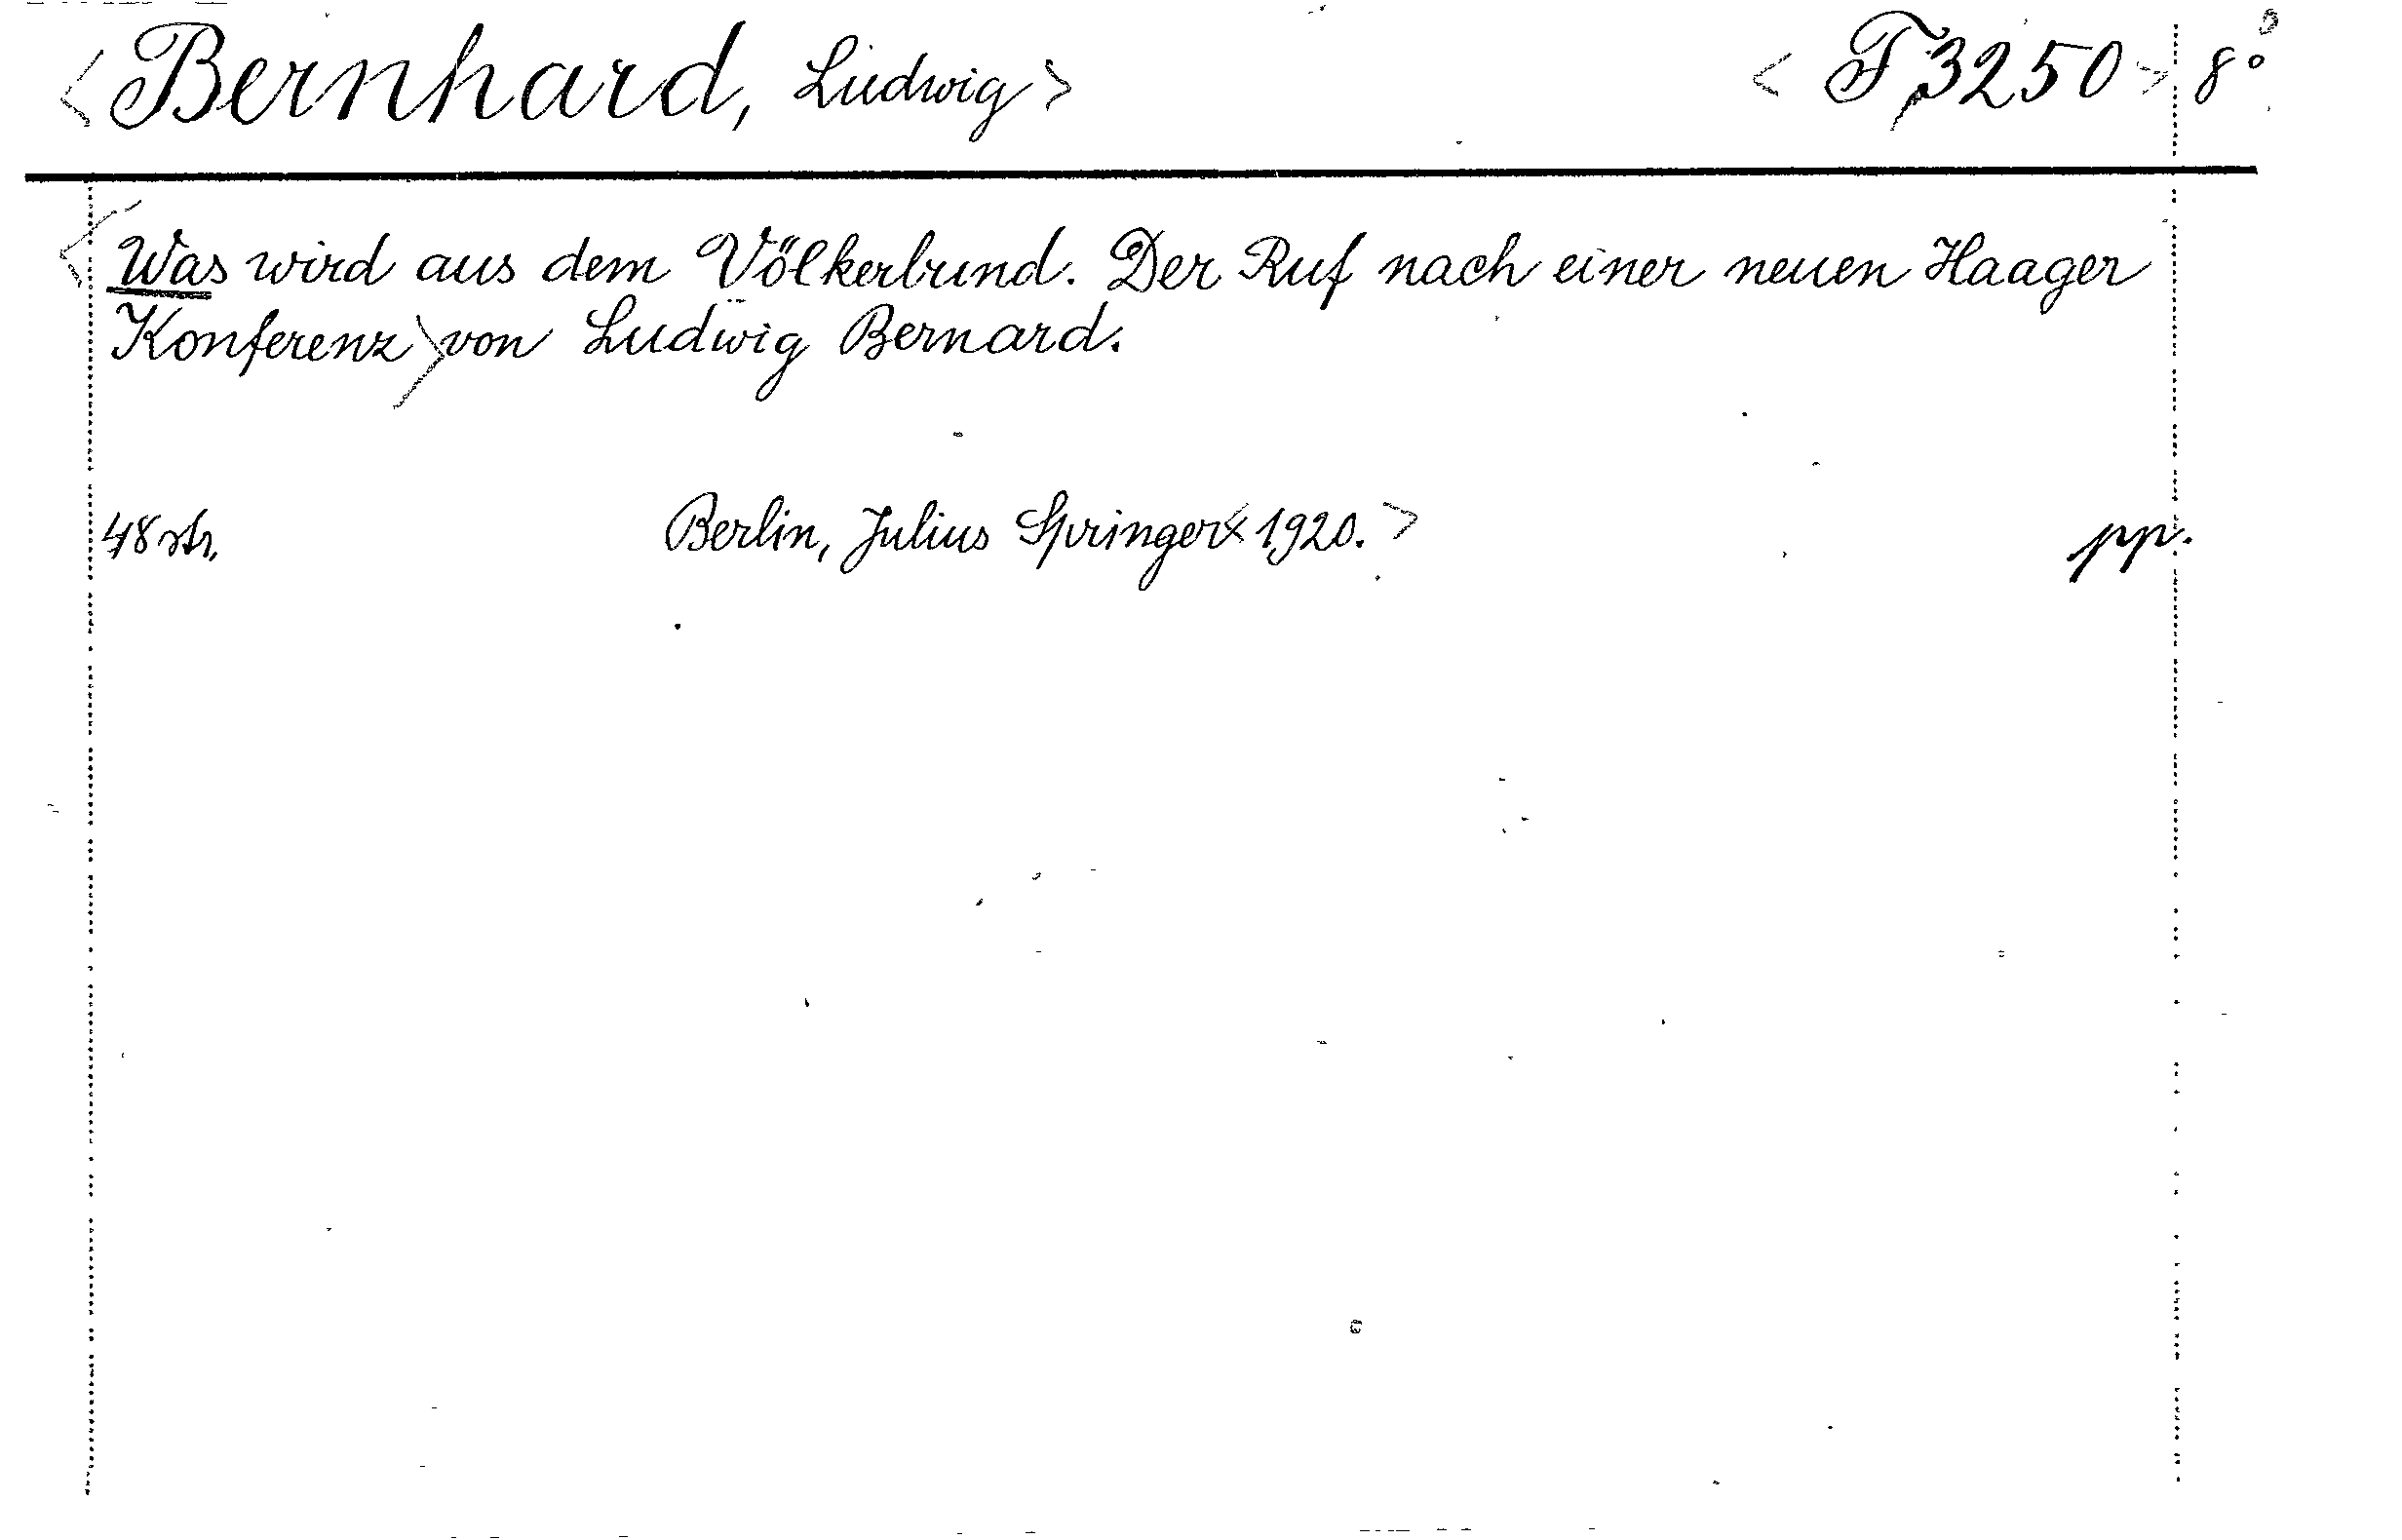 <Bernhard, Ludwig> <F, 3250> 8°
<Was wird aus dem Völkerbund. Der Ruf nach einer neuen Haager
Konferenz> von Ludwig Bernard.
48 str. Berlin, Julius Springer <1920.> pp.